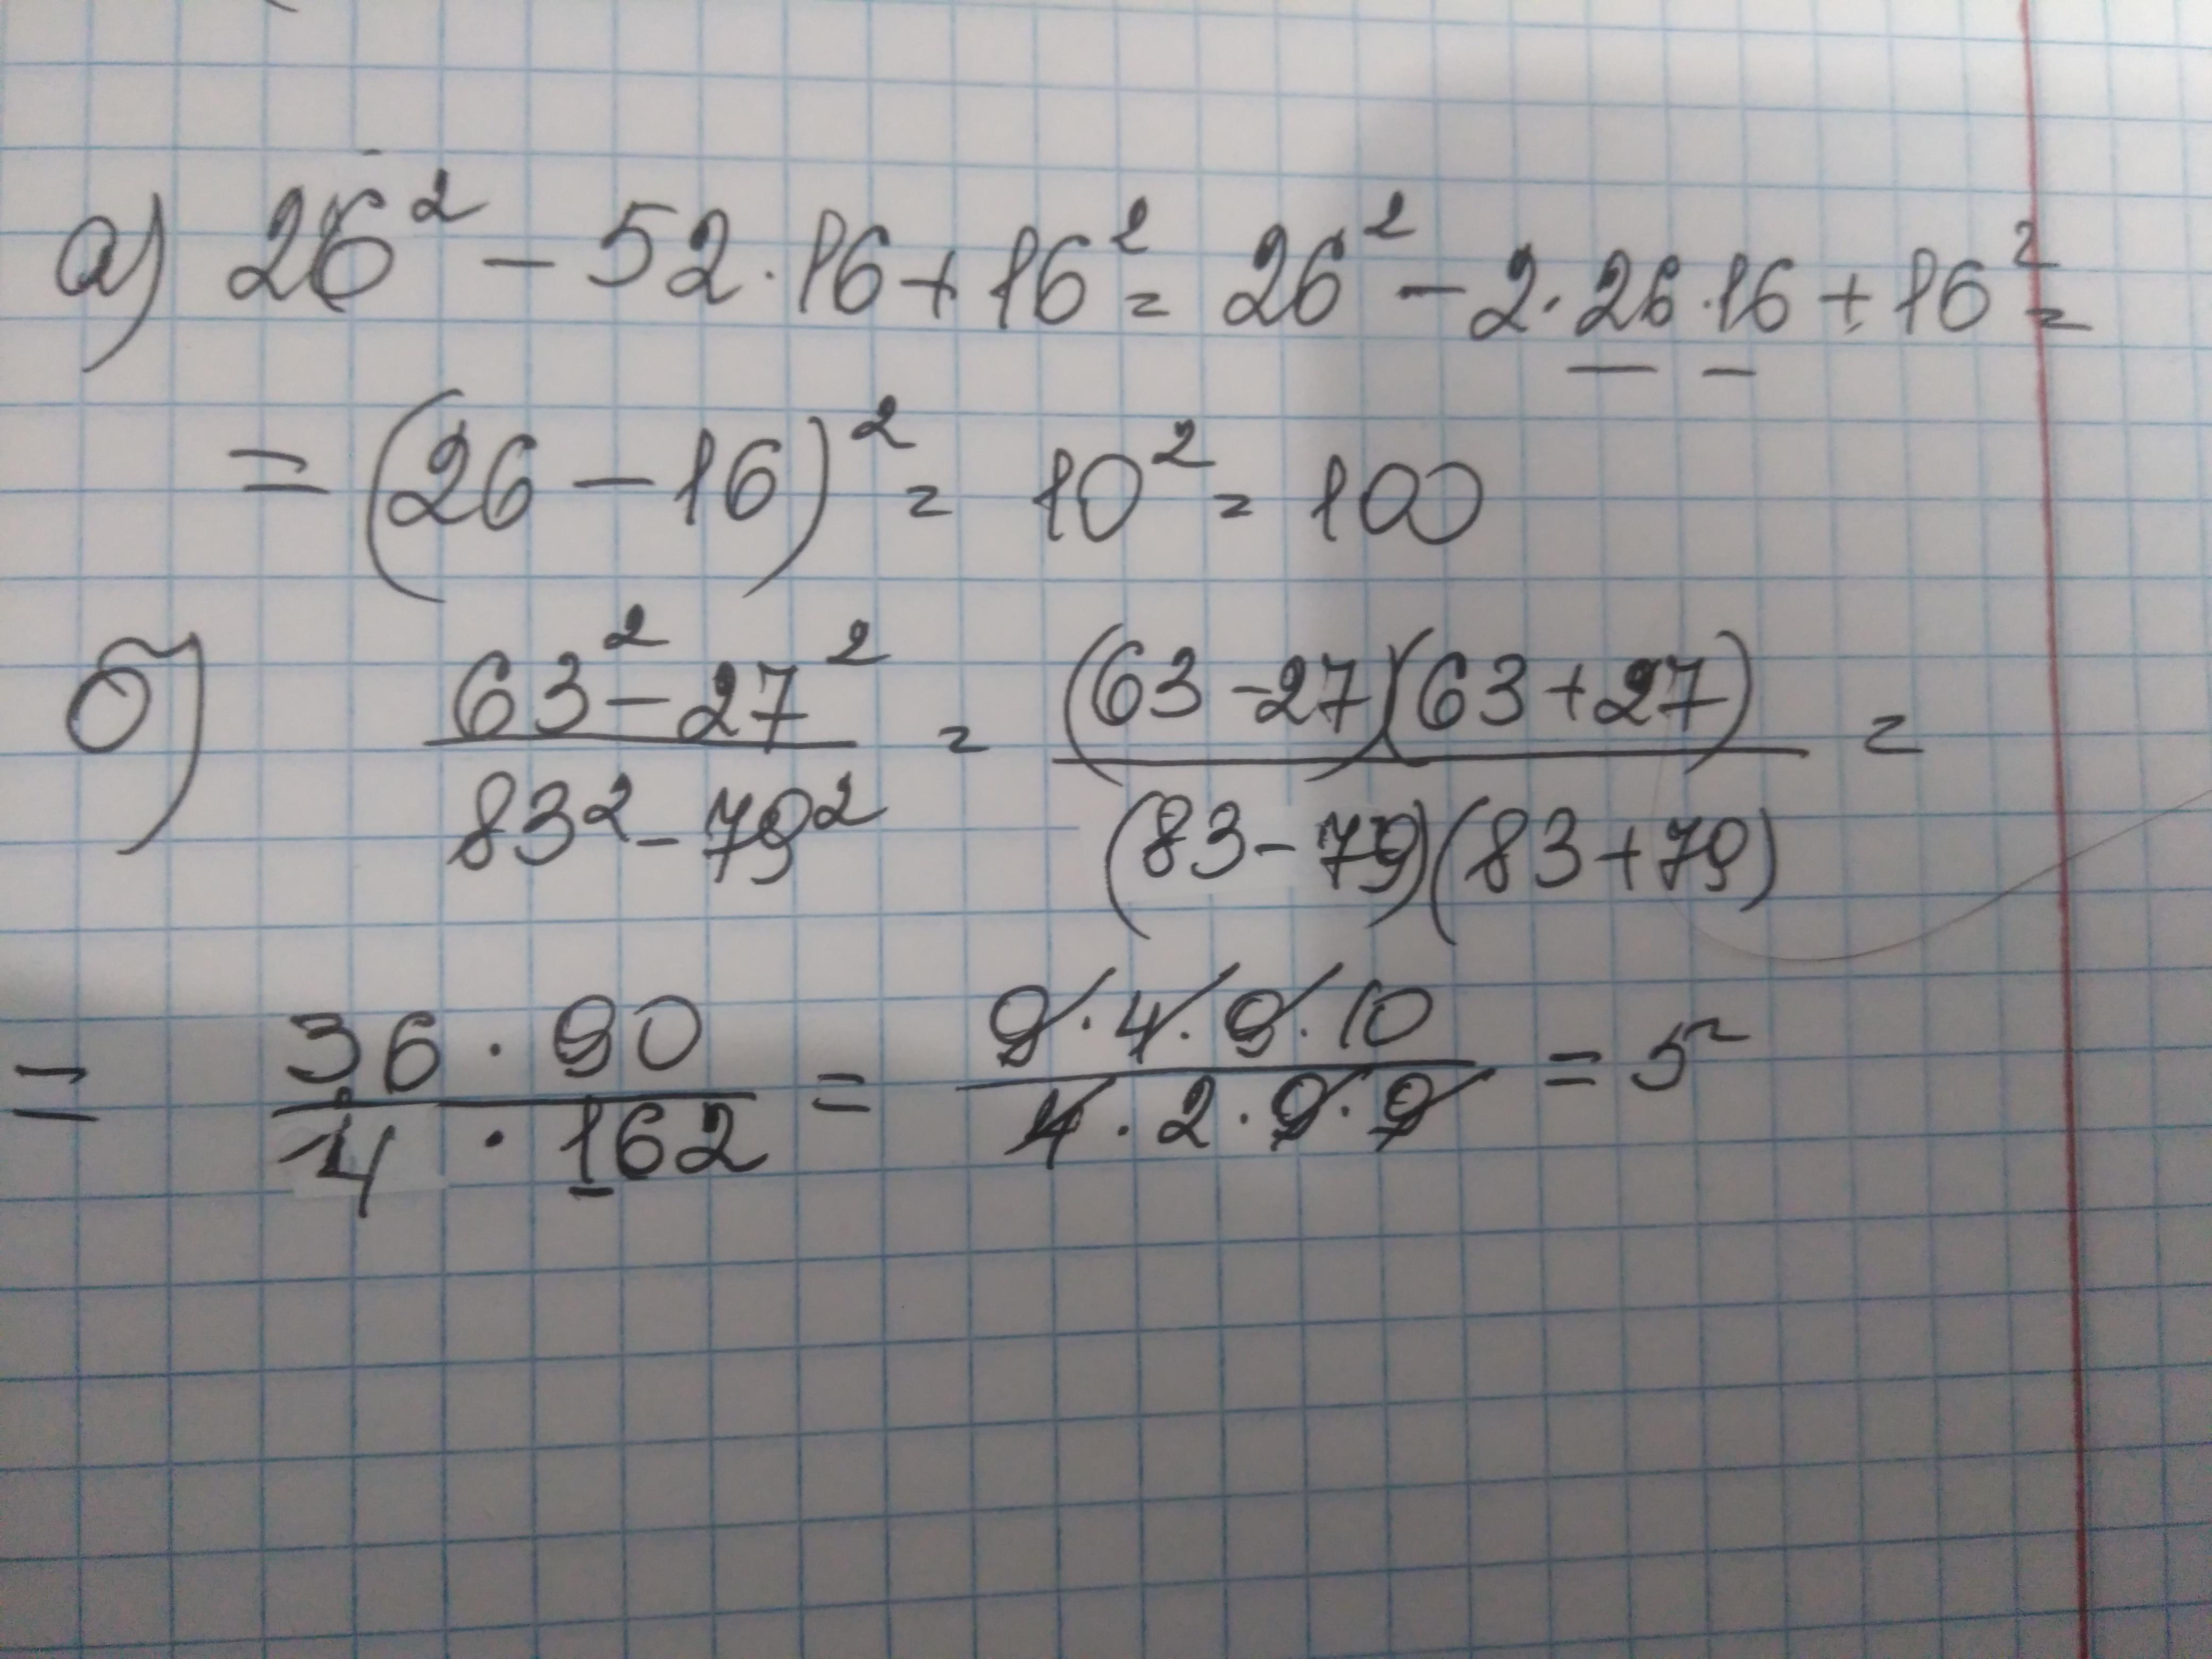 а) 26² - 52 · 16 + 16² = 26² - 2 · 26 · 16 + 16² =
= (26 - 16)² = 10² = 100
б) (63² - 27²)/(83² - 79²) = ((63 - 27)(63 + 27))/((83 - 79)(83 + 79)) =
= (36 · 90)/(4 · 162) = (9 · 4 · 9 · 10)/(4 · 2 · 9 · 9) = 5